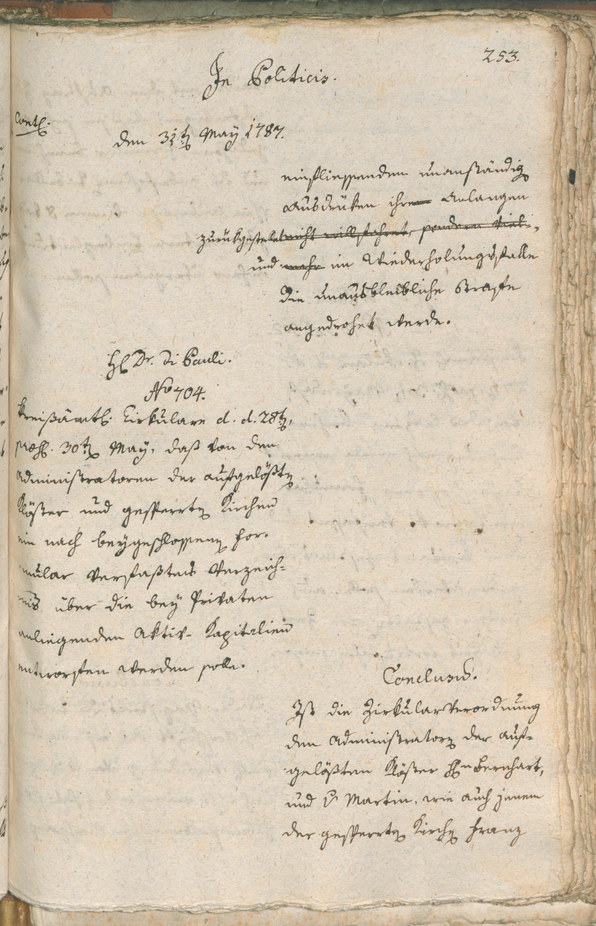 253.
In Politicis.
Contt:
den 31t May 1787.
einfliessenden unanständig
Ausdrüken ihre Anlangen
zurükgestelet nicht willfahret, sondern viel-
und mehr im Wiederholungsfalle
die unausbleibliche Straffe
angedrohet werde.
H Dr. Di Pauli.
No 704.
Kreißämtl. Cirkulare d. d. 28t,
præs. 30t May, daß von den
Administratoren der aufgelößte
Klöster und gesperrte Kirchen
ein nach beygeschlossene For-
mular verfaßtes Verzeich-
nis über die bey Privaten
anliegenden Aktiv-Kapitalien
entworfen werden solle.
Conclusu.
Ist die Zirkularverordnung
den Administrator der auf-
gelößten Klöster H Bernhart,
und v Martin, wie auch jenem
der gesperrte Kirche Franz